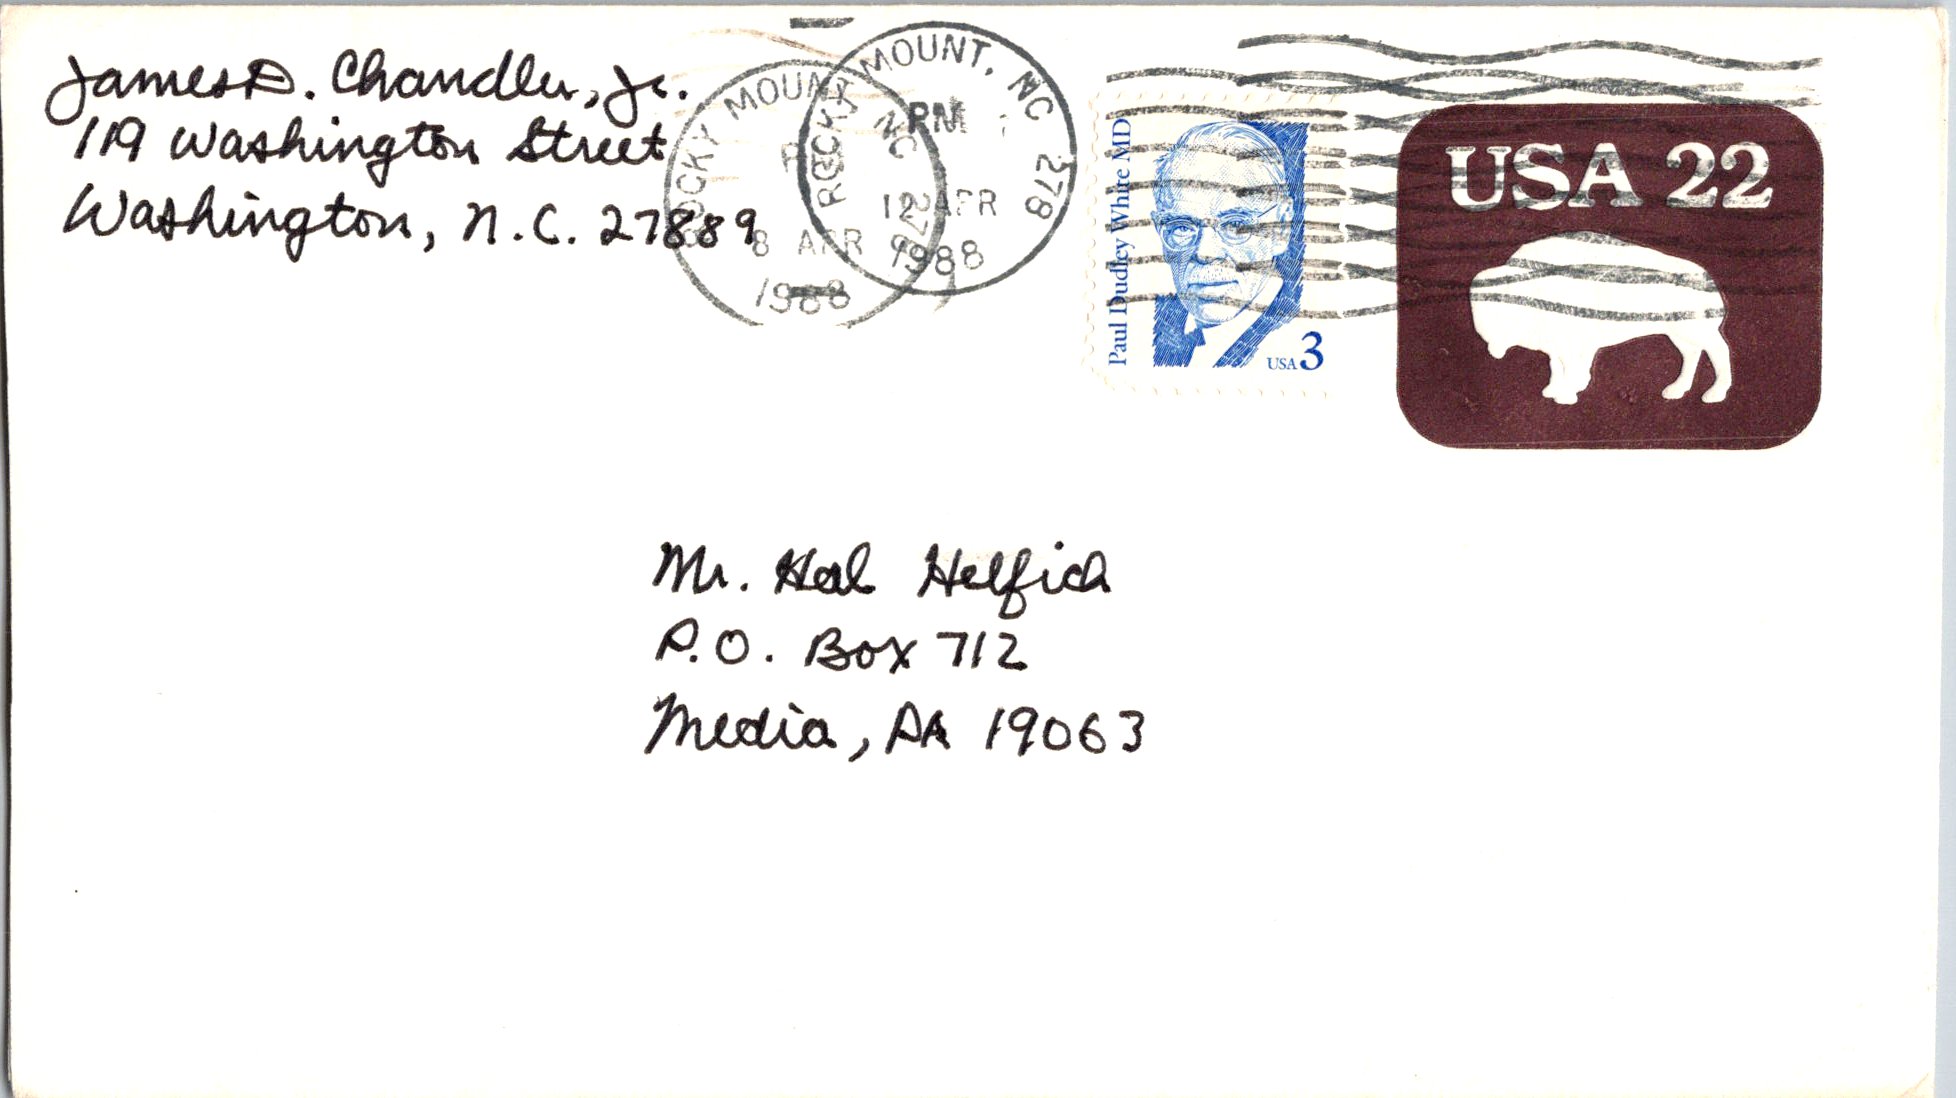 James D. Chandler, Jr.
119 Washington Street
Washington, N.C. 27889
ROCKY MOUNT, NC 278
8 APR
1988
ROCKY MOUNT, NC 278
PM
12 APR
1988
Paul Dudley White MD
USA 3
USA 22
Mr. Hal Helfich
P.O. Box 712
Media, PA 19063